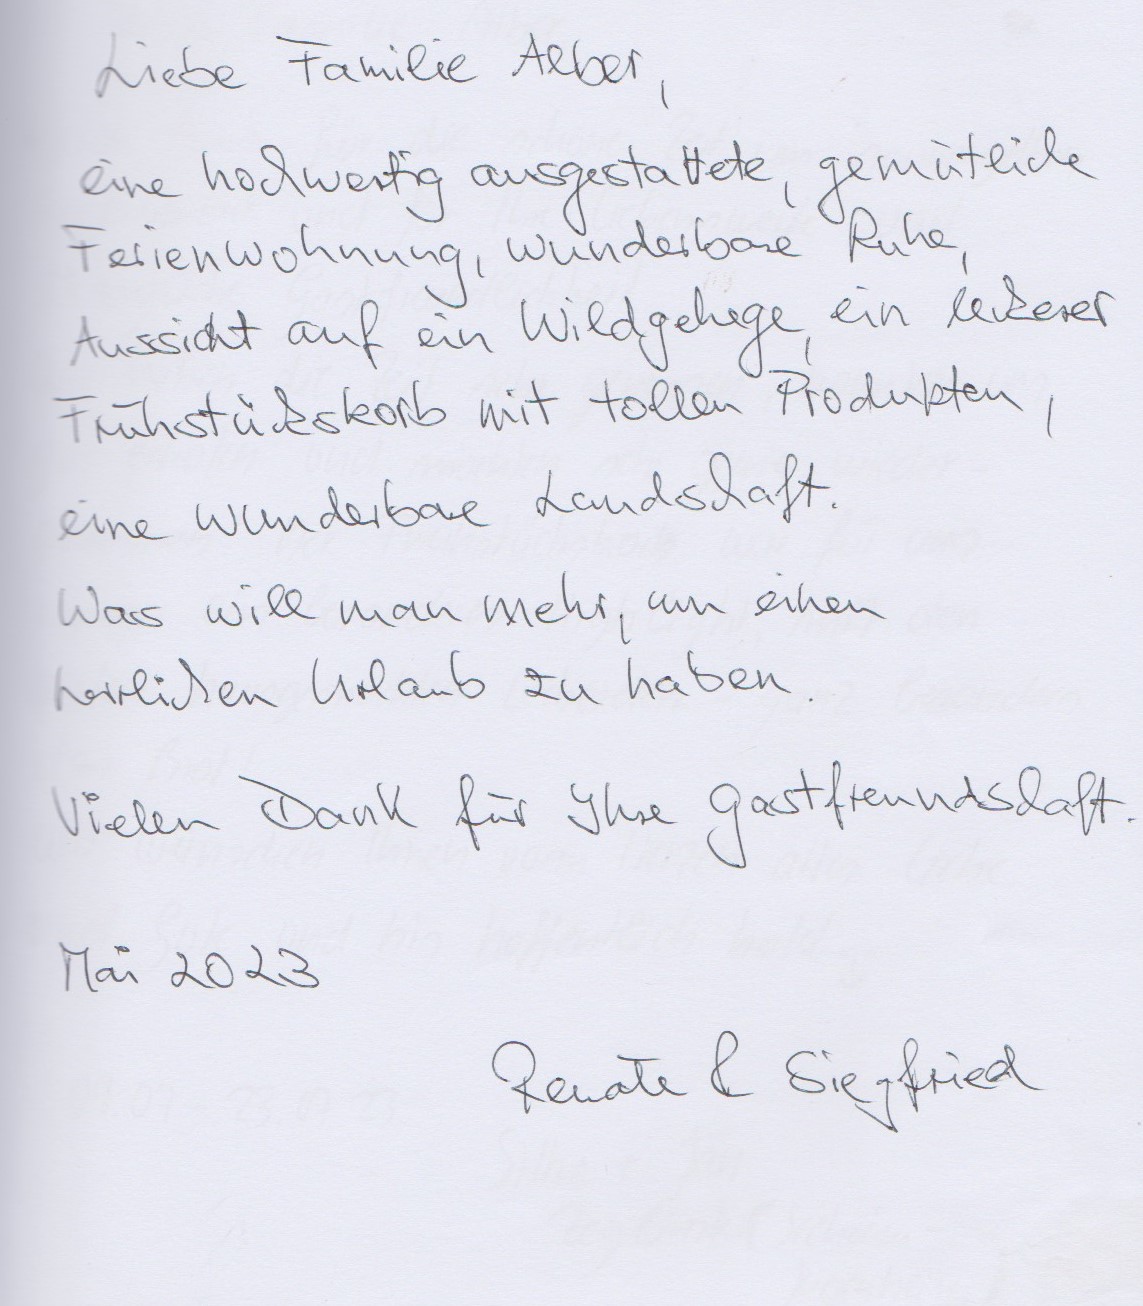 Liebe Familie Alber,
eine hochwertig ausgestattete, gemütliche
Ferienwohnung, wunderbare Ruhe,
Aussicht auf ein Wildgehege, ein leckerer
Frühstückskorb mit tollen Produkten,
eine wunderbare Landschaft.
Was will man mehr, um einen
herrlichen Urlaub zu haben.
Vielen Dank für Ihre Gastfreundschaft.
Mai 2023
Renate & Siegfried